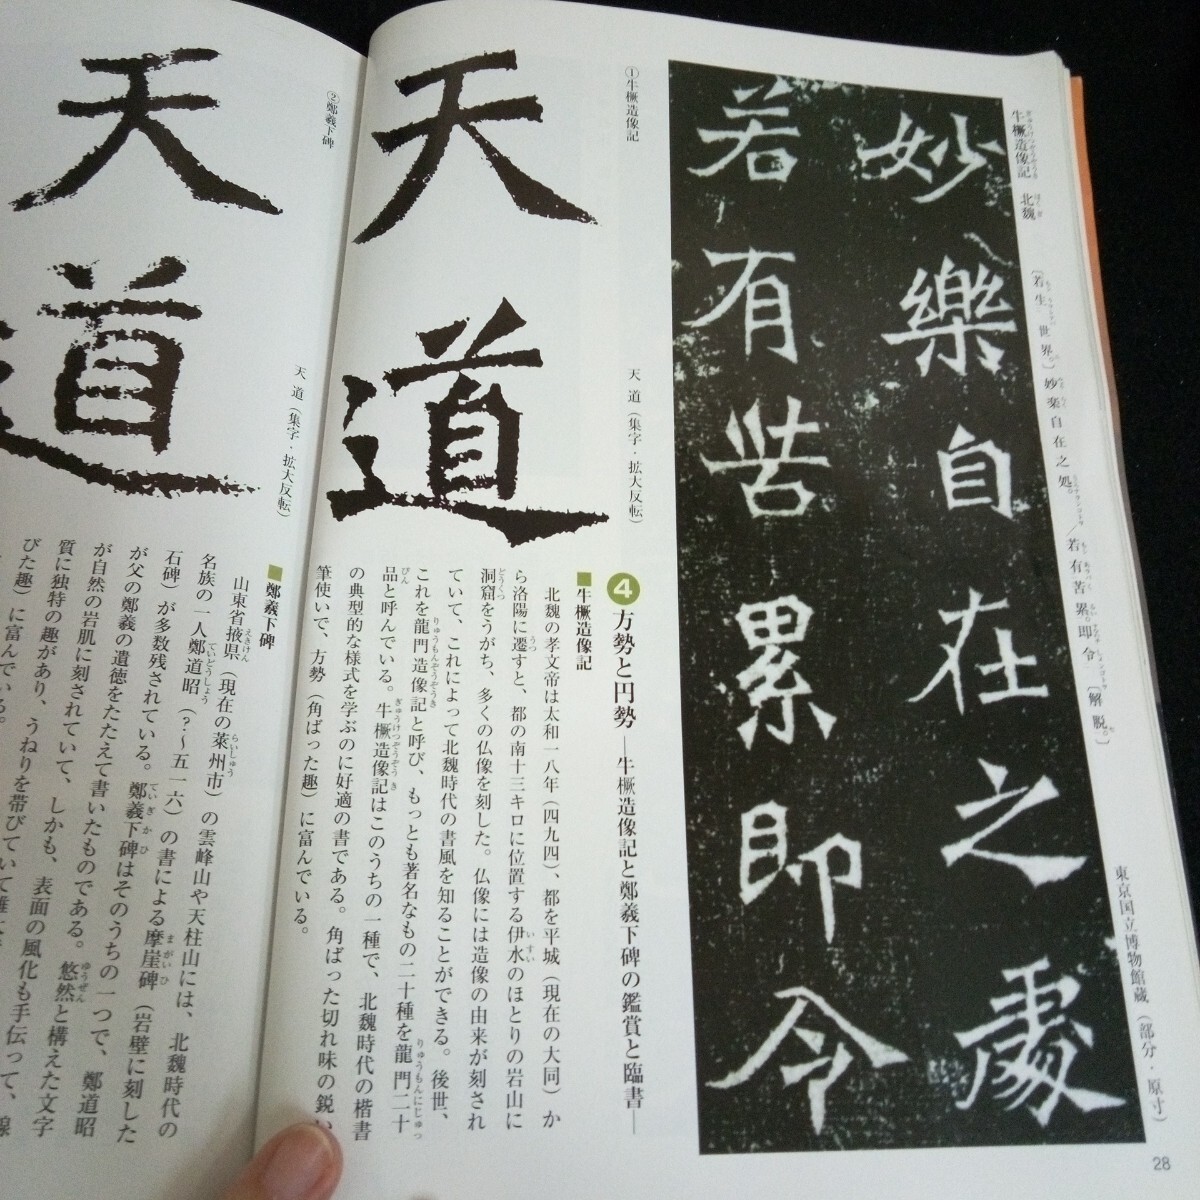 牛橛造像記 北魏
〔若生 世界。〕妙楽自在之処。/若有苦累。即令〔解脱。〕
東京国立博物館蔵(部分・原寸)
妙樂自在之處
若有苦累即令
①牛橛造像記
天道
天道(集字・拡大反転)
4 方勢と円勢―牛橛造像記と鄭羲下碑の鑑賞と臨書―
■牛橛造像記
北魏の孝文帝は太和一八年(四九四)、都を平城(現在の大同)か
ら洛陽に遷すと、都の南十三キロに位置する伊水のほとりの岩山に
洞窟をうがち、多くの仏像を刻した。仏像には造像の由来が刻され
ていて、これによって北魏時代の書風を知ることができる。後世、
これを龍門造像記と呼び、もっとも著名なもの二十種を龍門二十
品と呼んでいる。牛橛造像記はこのうちの一種で、北魏時代の楷書
の典型的な様式を学ぶのに好適の書である。角ばった切れ味の鋭い
筆使いで、方勢(角ばった趣)に富んでいる。
②鄭羲下碑
天道
天道(集字・拡大反転)
■鄭羲下碑
山東省掖県(現在の萊州市)の雲峰山や天柱山には、北魏時代の
名族の一人鄭道昭(?~五一六)の書による摩崖碑(岩壁に刻した
石碑)が多数残されている。鄭羲下碑はそのうちの一つで、鄭道昭
が父の鄭羲の遺徳をたたえて書いたものである。悠然と構えた文字
が自然の岩肌に刻されていて、しかも、表面の風化も手伝って、線
質に独特の趣があり、うねりを帯びていて
びた趣)に富んでいる。
28